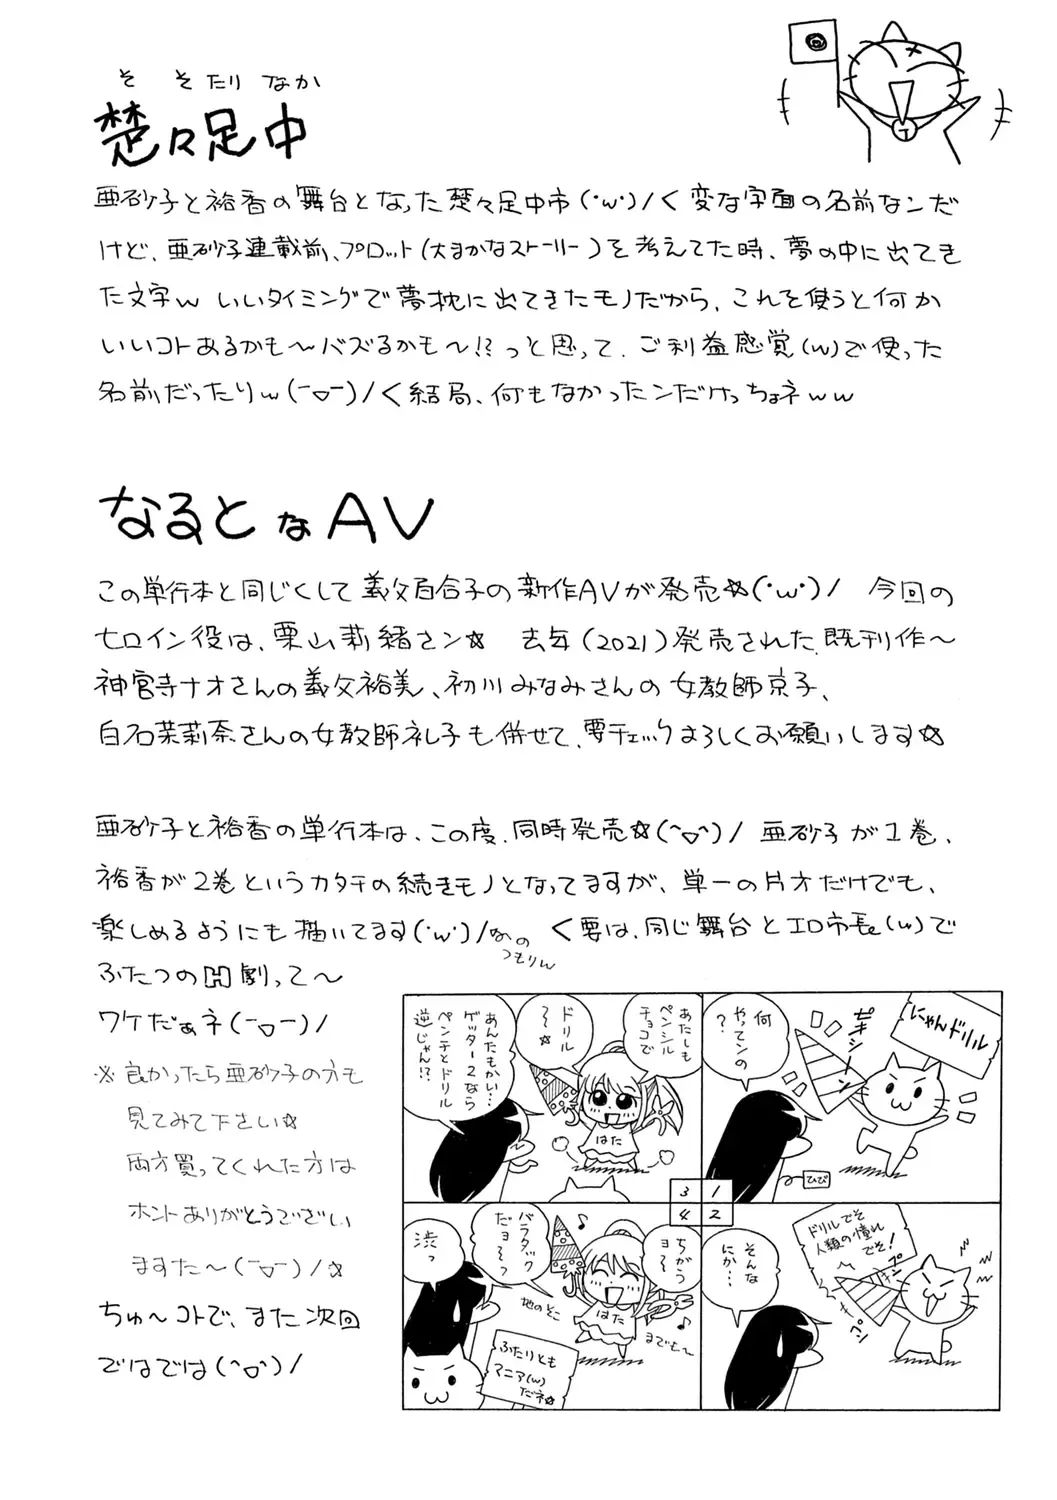 そ そたり なか
楚々足中
亜砂子と裕香の舞台となった楚々足中市(・ω・)/く変な字面の名前なンだ
けど、亜砂子連載前、プロット(大まかなストーリー)を考えてた時、夢の中に出てき
た文字w いいタイミングで夢枕に出てきたモノだから、これを使うと何か
いいコトあるかも〜バズるかも〜!?っと思って、ご利益感覚(w)で使った
名前だったりw(ー▽ー)/く結局、何もなかったンだけっちょネww
なるとなAV
この単行本と同じくして義父百合子の新作AVが発売☆(・ω・)/ 今回の
ヒロイン役は、栗山莉緒さン☆ 去年(2021)発売された既刊作〜
神宮寺ナオさんの義父裕美、初川みなみさんの女教師京子、
白石茉莉奈さんの女教師礼子も併せて、要チェックよろしくお願いします☆
亜砂子と裕香の単行本は、この度、同時発売☆(^▽^)/ 亜砂子が1巻、
裕香が2巻というカタチの続きモノとなってますが、単一の片オだけでも、
楽しめるようにも描いてます(・ω・)/なのつもりん く要は、同じ舞台とエロ市長(w)で
ふたつのH劇って〜
ワケだぁネ(ー▽ー)/
※良かったら亜砂子の方も
見てみて下さい☆
両方買ってくれた方は
ホントありがとうござい
ますた〜(ー▽ー)/☆
ちゅ〜コトで、また次回
ではでは(^▽^)/
にゃんドリル
ギュギューン
何
やってンの
?
ひび
ドリルでそ
人類の憧れ
でそ!
プンプン
そんな
にか…
あたしも
ペンシル
チョコで
ドリル
〜☆
あんたもかい…
ゲッター2なら
ペンチとドリル
逆じゃん!?
はた
ちがう
ヨ〜
バラタック
だヨ〜っ
♪
地のそこ
はた
までも〜
♪
渋っ
ふたりとも
マニア(w)
だネ☆
3 1
4 2